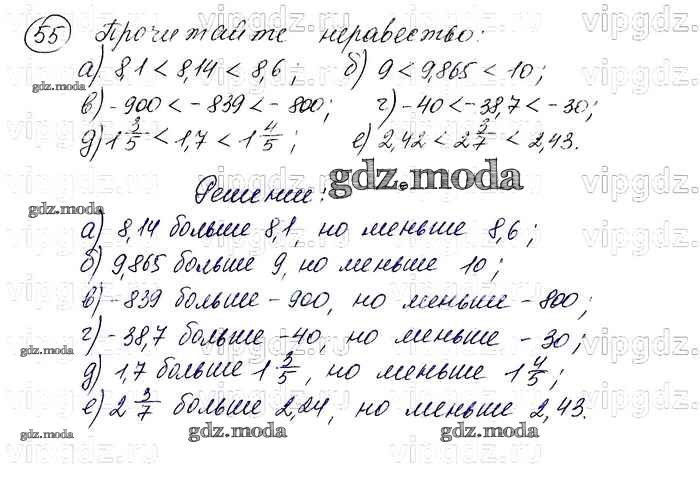 55 Прочитайте неравество:
а) 8,1 < 8,14 < 8,6; б) 9 < 9,865 < 10;
gdz.moda
в) -900 < -839 < -800; г) -40 < -38,7 < -30;
д) 1 3/5 < 1,7 < 1 4/5; е) 2,42 < 2 3/7 < 2,43.
gdz.moda
Решение:
gdz.moda
а) 8,14 больше 8,1, но меньше 8,6;
б) 9,865 больше 9, но меньше 10;
в) -839 больше -900, но меньше -800;
г) -38,7 больше -40, но меньше -30;
gdz.moda
д) 1,7 больше 1 3/5, но меньше 1 4/5;
е) 2 3/7 больше 2,24, но меньше 2,43.
gdz.moda gdz.moda
vipgdz.ru